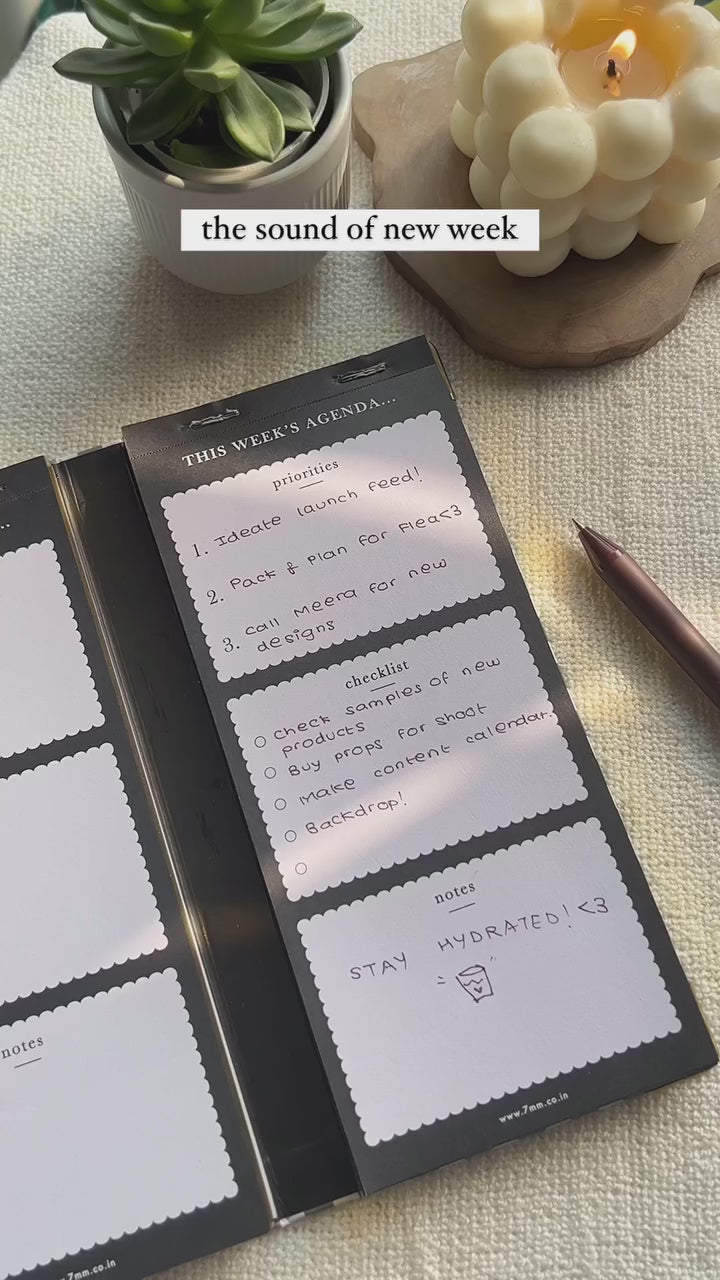 the sound of new week
THIS WEEK'S AGENDA...
priorities
1. Ideate launch feed!
2. Pack & Plan for Flea<3
3. Call Meera for new
designs
checklist
Check samples of new
products
Buy props for shoot
Make content calendar.
Backdrop!
notes
STAY HYDRATED! <3
=
www.7mm.co.in
...
notes
7mm.co.in